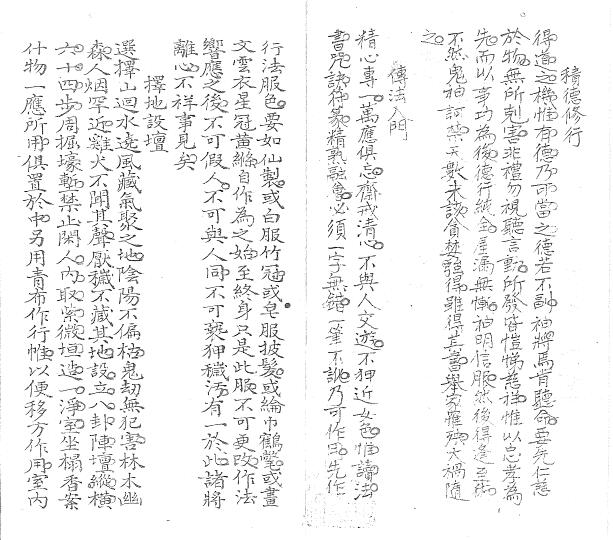 積德修行
得道之機惟有德乃可當之德若不訓神將焉肯聽命要先仁慈
於物無所剋害非禮勿視聽言動所發皆愷悌慈祥惟以忠孝為
先而以事功為後德行純全差漏無慚神明信服然後得逢至術
不然鬼神訶禁天數未該貪婪強得雖得其書舉家罹殃大禍隨
之
傳法入門
精心專一萬應俱忘齋戒清心不與人文遊不狎近女色惟讀法
書咒訣符篆精熟融會必須一字無錯一筆不訛乃可作用先作
行法服色要如仙製或白服竹冠或皂服披髮或綸巾鶴氅或畫
文雲衣星冠黃絲自作為之始至終身只是此服不可更改作法
響應之後不可假人不可與人同不可褻狎穢污有一於此諸將
離心不祥事見矣
擇地設壇
選擇山迴水遶風藏氣聚之地陰陽不偏枯鬼劫無犯害林木幽
森人烟罕近雞犬不聞其聲厭穢不藏其地設立八卦陣壇縱橫
六十四步周掘壕塹禁止閑人內取紫微垣造一淨室坐榻香案
什物一應所用俱置於中另用青布作行帷以便移方作用室內